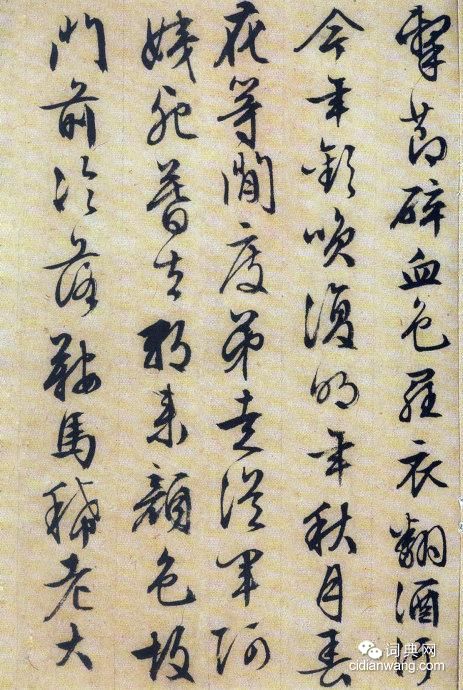 擊節碎血色羅衣翻酒汙
今年歡咲復明年秋月春
花等閒度弟走從軍阿
姨死暮去朝來顏色故
門前冷落鞍馬稀老大
词典网
cidianwang.com